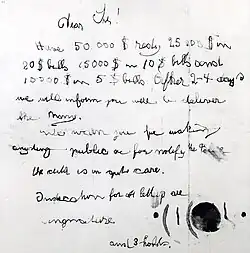 Dear Sir!
Have 50.000 $ redy 25 000 $ in
20 $ bills 15000 $ in 10 $ bills and
10000 $ in 5 $ bills After 2-4 days
we will inform you were to deliver
the mony.
We warn you for making
anyding public or for notify the
the child is in gute care.
Indication for all letters are
singnature
and 3 holes.